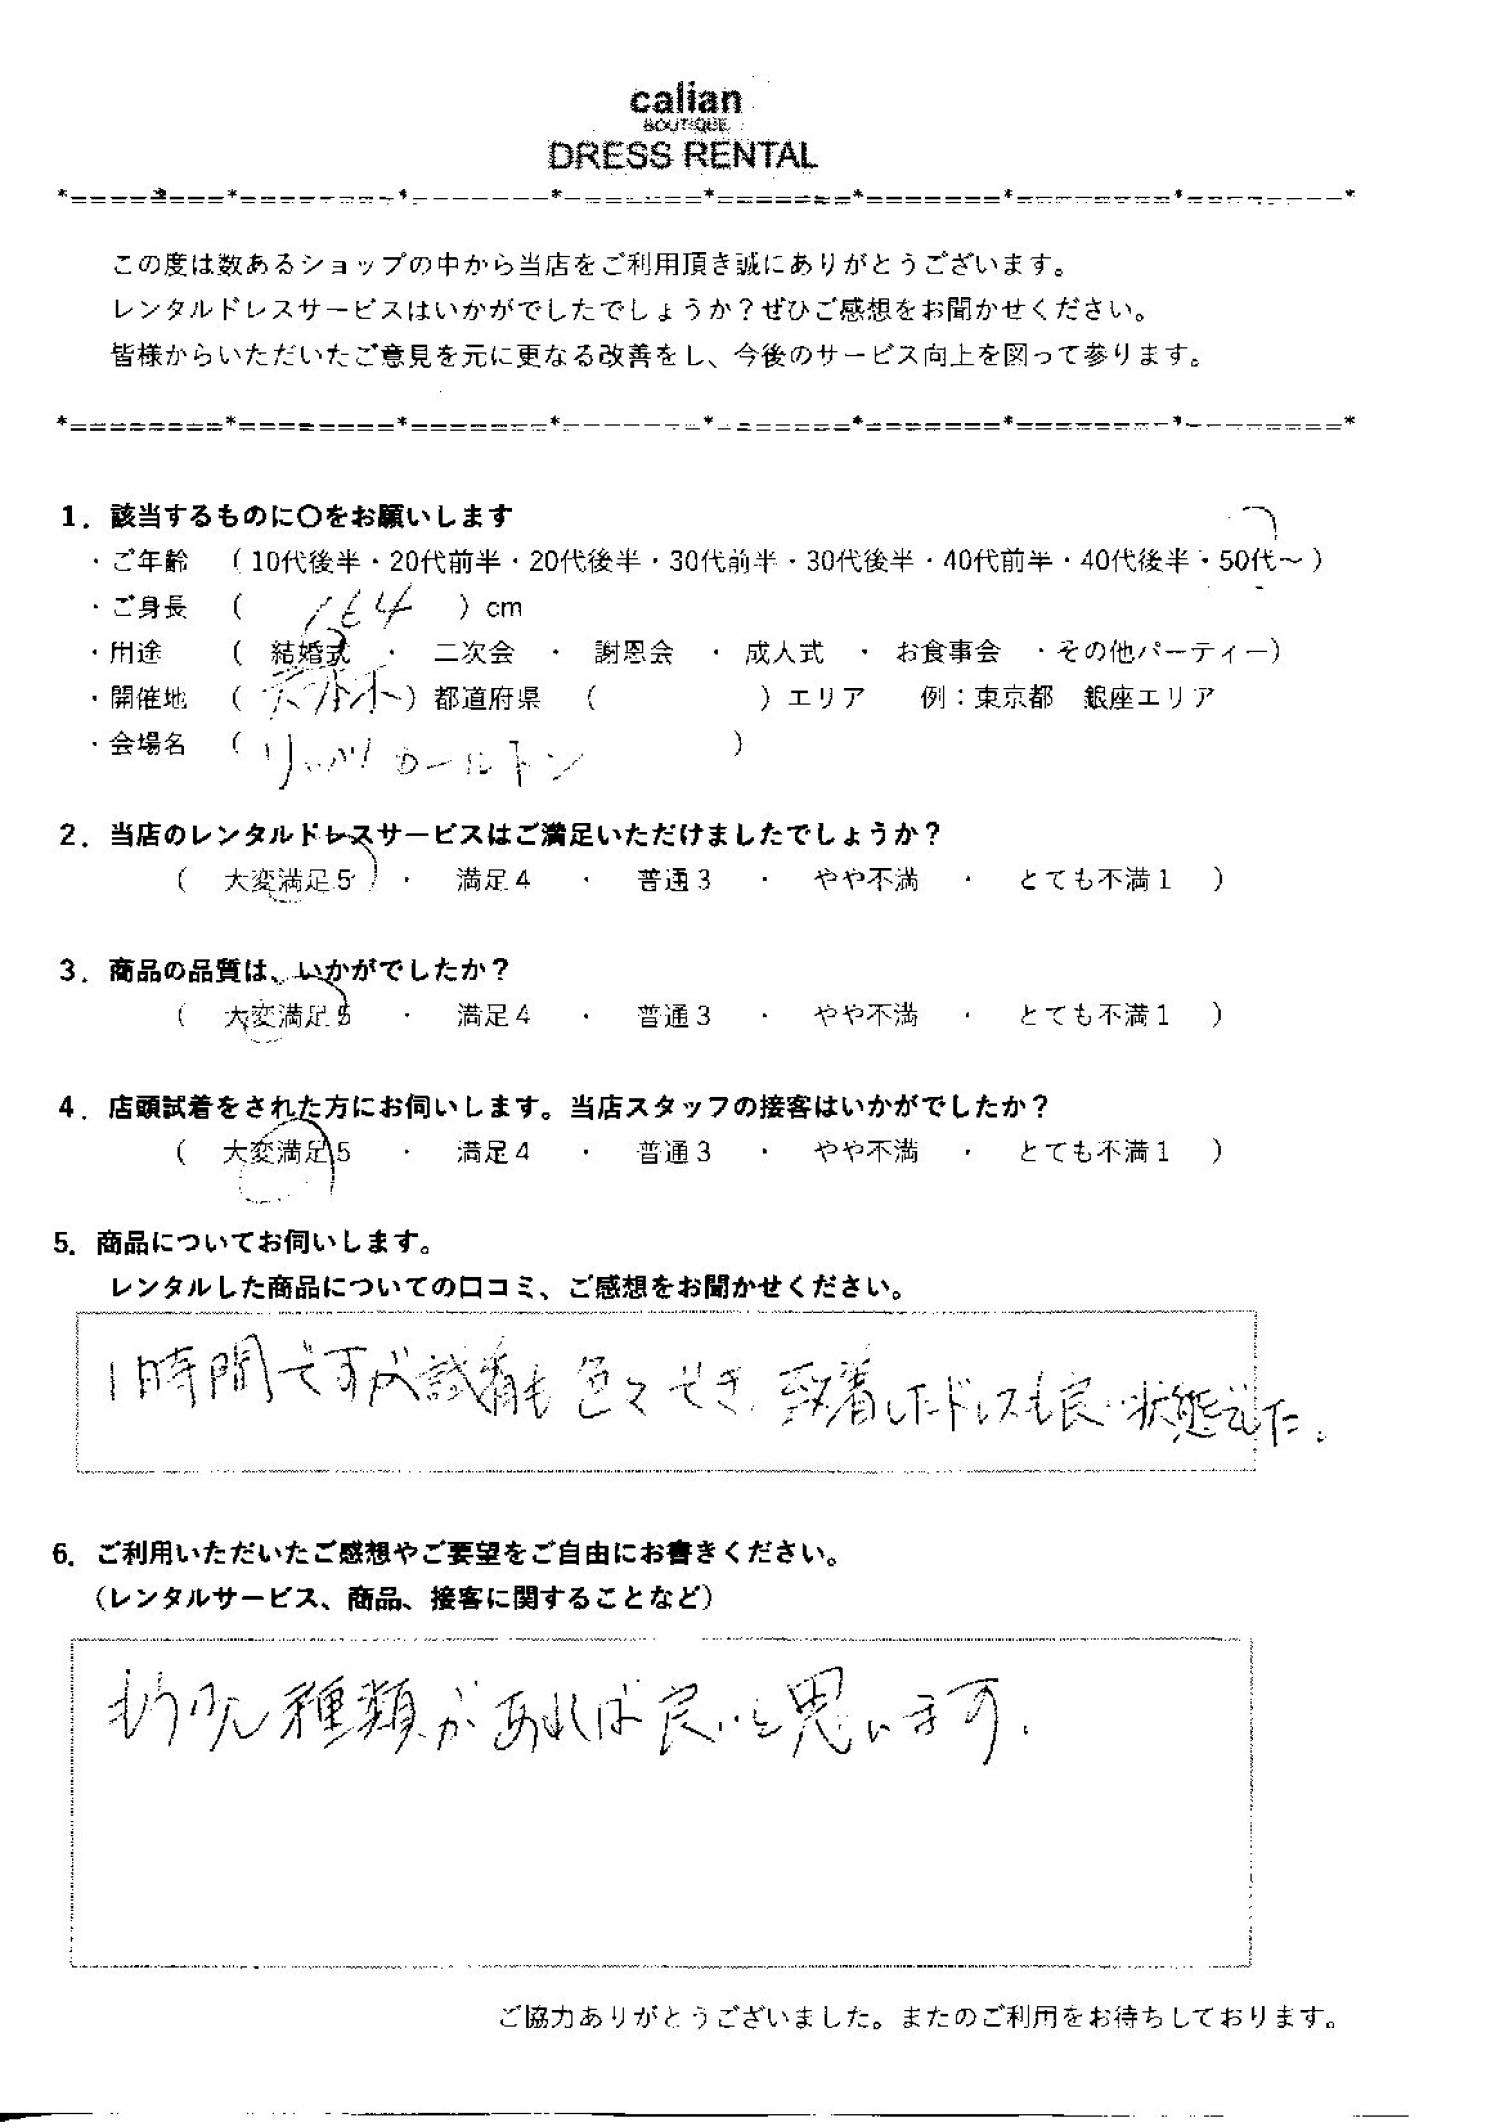 calian
BOUTIQUE
DRESS RENTAL
この度は数あるショップの中から当店をご利用頂き誠にありがとうございます。
レンタルドレスサービスはいかがでしたでしょうか？ぜひご感想をお聞かせください。
皆様からいただいたご意見を元に更なる改善をし、今後のサービス向上を図って参ります。
1．該当するものに〇をお願いします
・ご年齢 （10代後半・20代前半・20代後半・30代前半・30代後半・40代前半・40代後半・50代～）
・ご身長 （ 164 ）cm
・用途 （ 結婚式 ・ 二次会 ・ 謝恩会 ・ 成人式 ・ お食事会 ・その他パーティー）
・開催地 （ 六本木 ）都道府県 （ ）エリア 例：東京都 銀座エリア
・会場名 （ リッツカールトン ）
2．当店のレンタルドレスサービスはご満足いただけましたでしょうか？
（ 大変満足5 ・ 満足4 ・ 普通3 ・ やや不満 ・ とても不満1 ）
3．商品の品質は、いかがでしたか？
（ 大変満足5 ・ 満足4 ・ 普通3 ・ やや不満 ・ とても不満1 ）
4．店頭試着をされた方にお伺いします。当店スタッフの接客はいかがでしたか？
（ 大変満足5 ・ 満足4 ・ 普通3 ・ やや不満 ・ とても不満1 ）
5．商品についてお伺いします。
レンタルした商品についての口コミ、ご感想をお聞かせください。
1時間ですが試着も色々でき、到着したドレスも良い状態でした。
6．ご利用いただいたご感想やご要望をご自由にお書きください。
（レンタルサービス、商品、接客に関することなど）
もう少し種類があれば良いと思います.
ご協力ありがとうございました。またのご利用をお待ちしております。